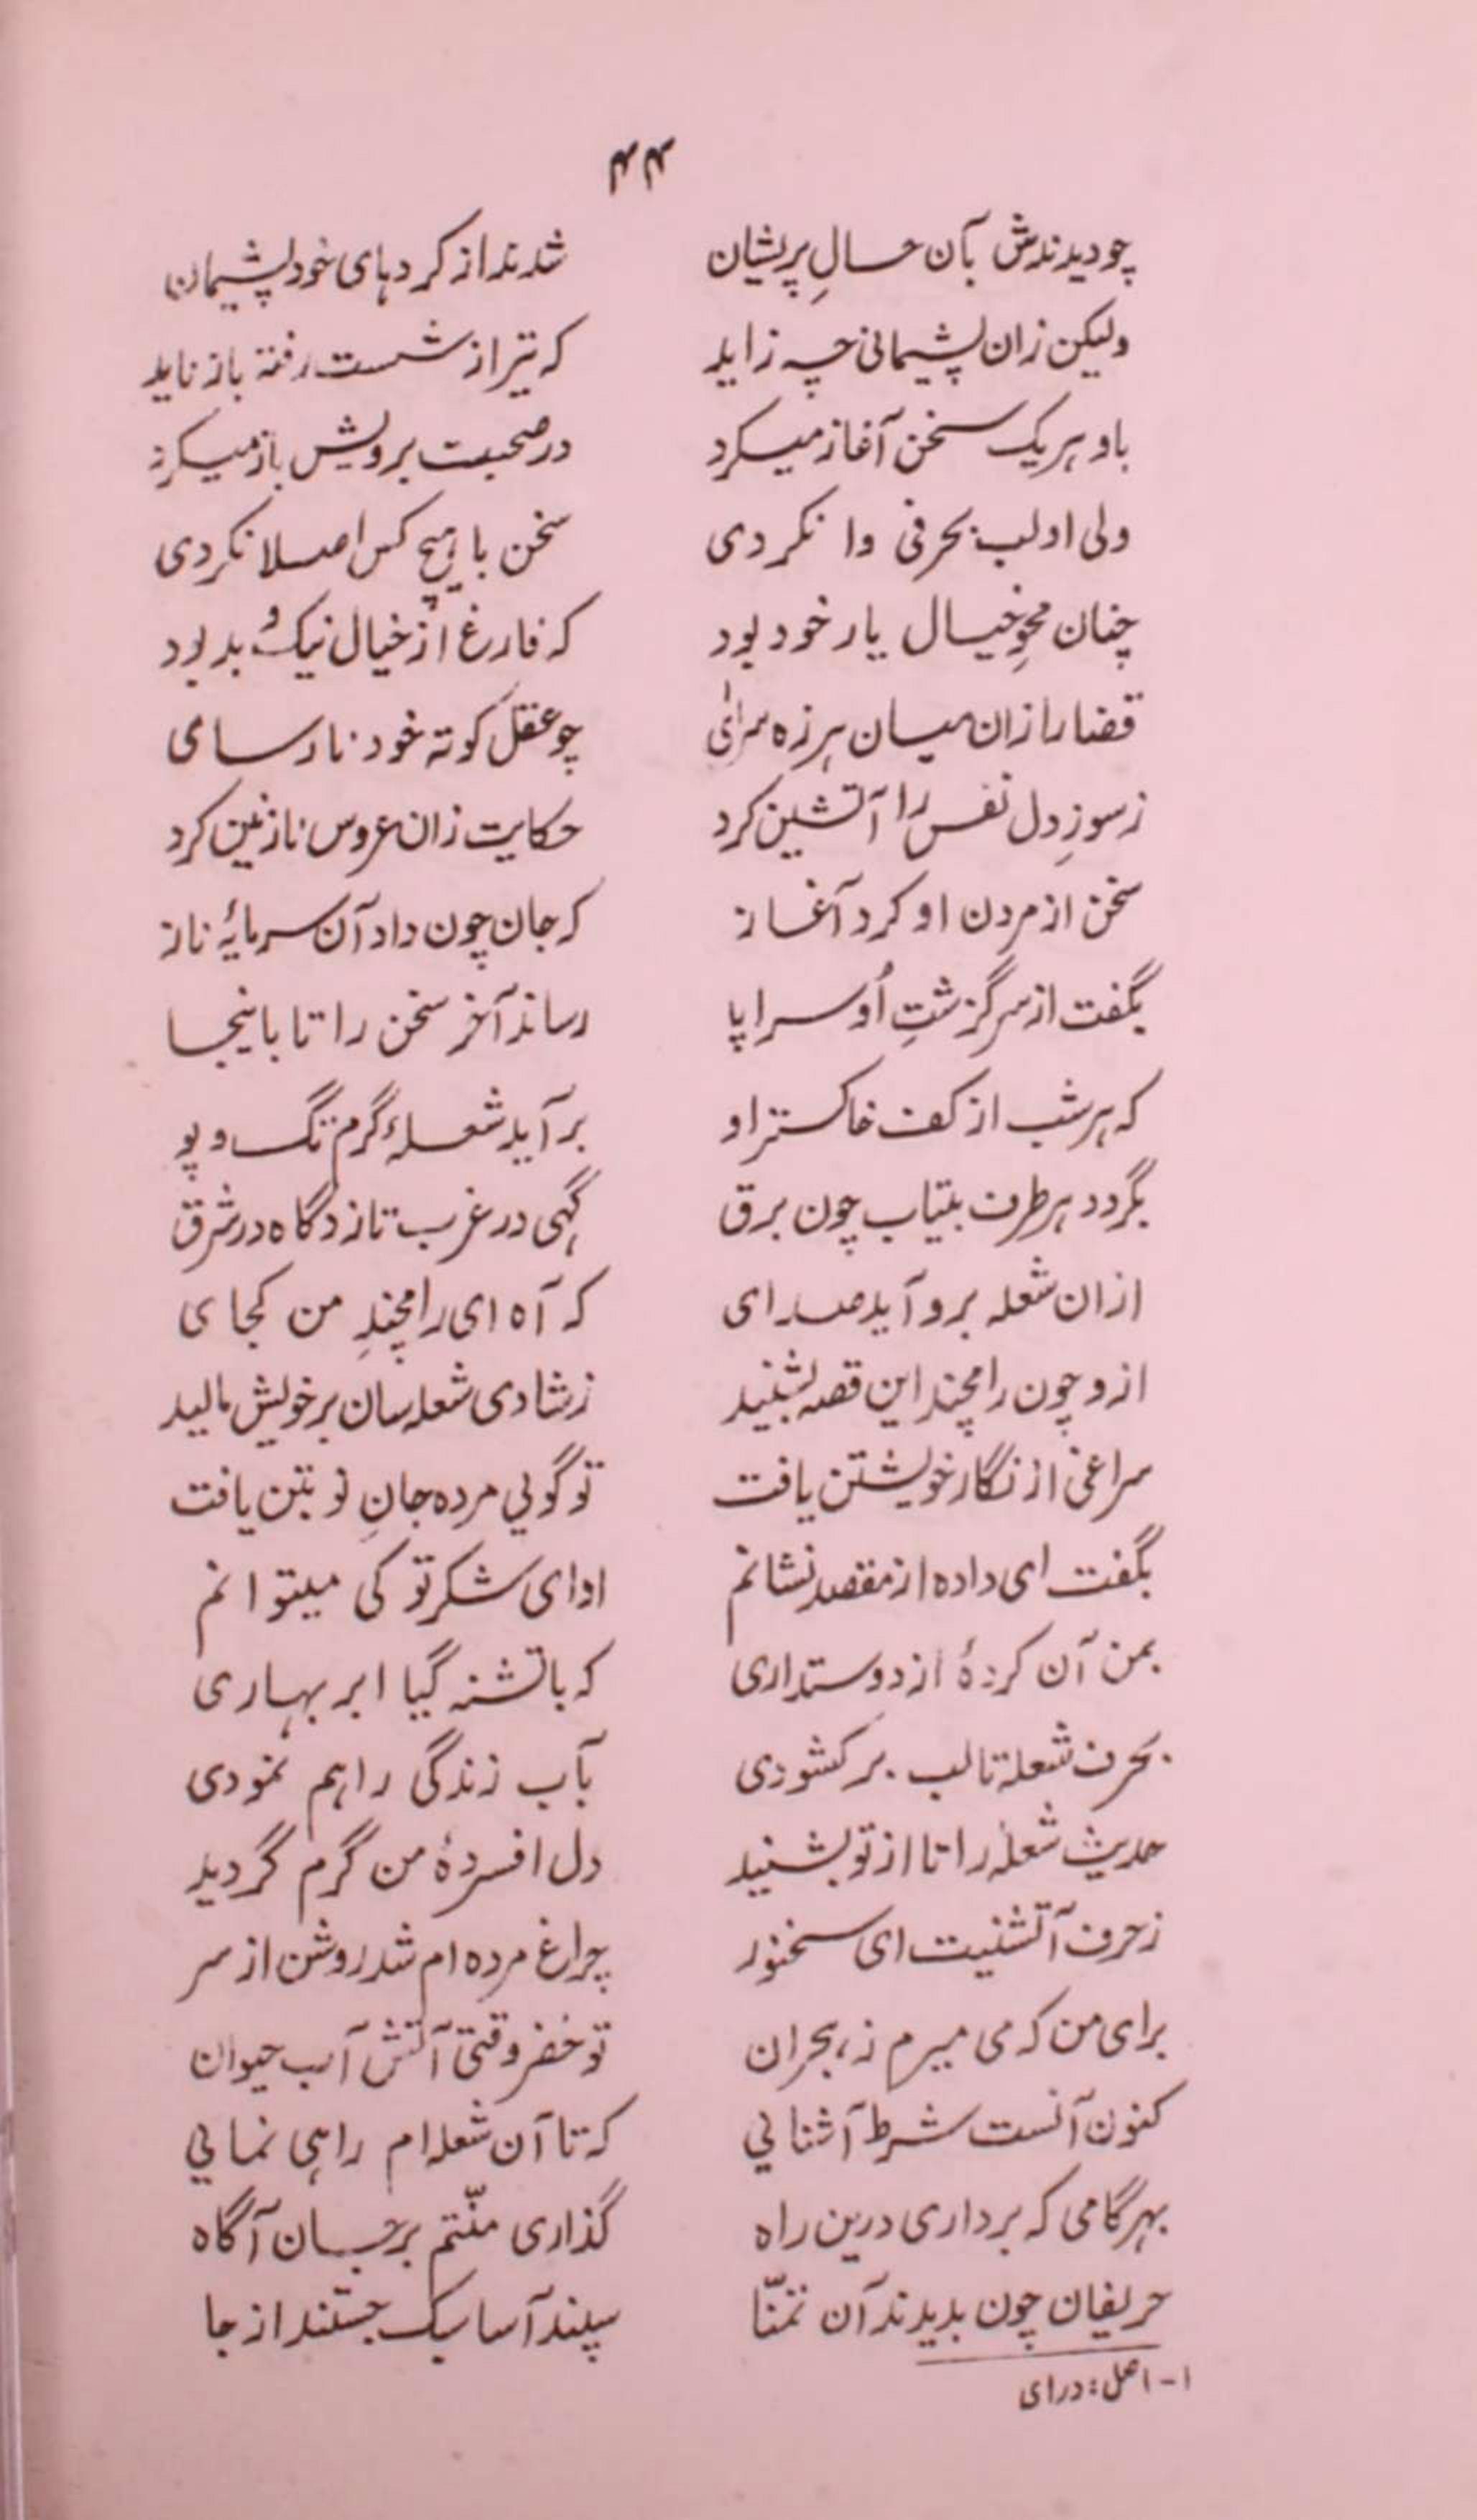 ۴۴
چو دیدندش بآن حسالِ پریشان شدند از کردهای خود پشیمان
ولیکن زان پشیمانی چه زاید که تیر از شست رفته باز ناید
باو هر یک سخن آغاز میکرد در صحبت برویش باز میکرد
ولی او لب بحرفی وا نکردی سخن با هیچ کس اصلا نکردی
چنان محوِ خیال یار خود بود که فارغ از خیال نیک و بد بود
قضا را زان میان هرزه سرائی چو عقل کوته خود نارسای
ز سوزِ دل نفس را آتشین کرد حکایت زان عروس نازنین کرد
سخن از مردن او کرد آغاز که جان چون داد آن سرمایۀ ناز
بگفت از سرگزشتِ اُو سراپا رساند آخر سخن را تا باینجا
که هر شب از کف خاکستر او بر آید شعلۀ گرم تگ و پو
بگردد هر طرف بیتاب چون برق گهی در غرب تازد گاه در شرق
ازان شعله برو آید صدای که آه ای رامچندِ من کجای
ازو چون رامچند این قصه بشنید ز شادی شعله سان بر خویش بالید
سراغی از نگار خویشتن یافت تو گویی مرده جانِ نو بتن یافت
بگفت ای داده از مقصد نشانم ادای شکر تو کی میتوانم
بمن آن کردۀ از دوستداری که با تشنه گیا ابر بهاری
بحرف شعله تا لب بر کشودی بآب زندگی راهم نمودی
حدیث شعله را تا از تو بشنید دل افسردۀ من گرم گردید
ز حرف آتشنیت ای سخنور چراغ مرده ام شد روشن از سر
برای من که می میرم ز هجران تو خضر وقتی آتش آب حیوان
کنون آنست شرط آشنایی که تا آن شعله ام راهی نمایی
بهر گامی که برداری درین راه گذاری منّتم بر جان آگاه
حریفان چون بدیدند آن تمنّا سپند آسا سبک جستند از جا
۱- اصل: درای